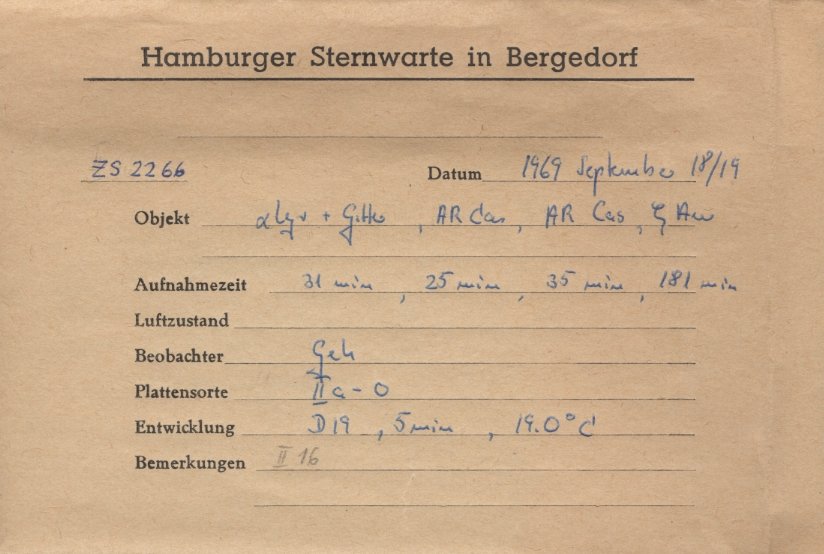 Hamburger Sternwarte in Bergedorf
ZS 2266 Datum 1969 September 18/19
Objekt α Lyr + Gitter, AR Cas, AR Cas, ζ Aur
Aufnahmezeit 31 min, 25 min, 35 min, 181 min
Luftzustand
Beobachter Geh
Plattensorte IIa-O
Entwicklung D19, 5min, 19.0°C
Bemerkungen II 16